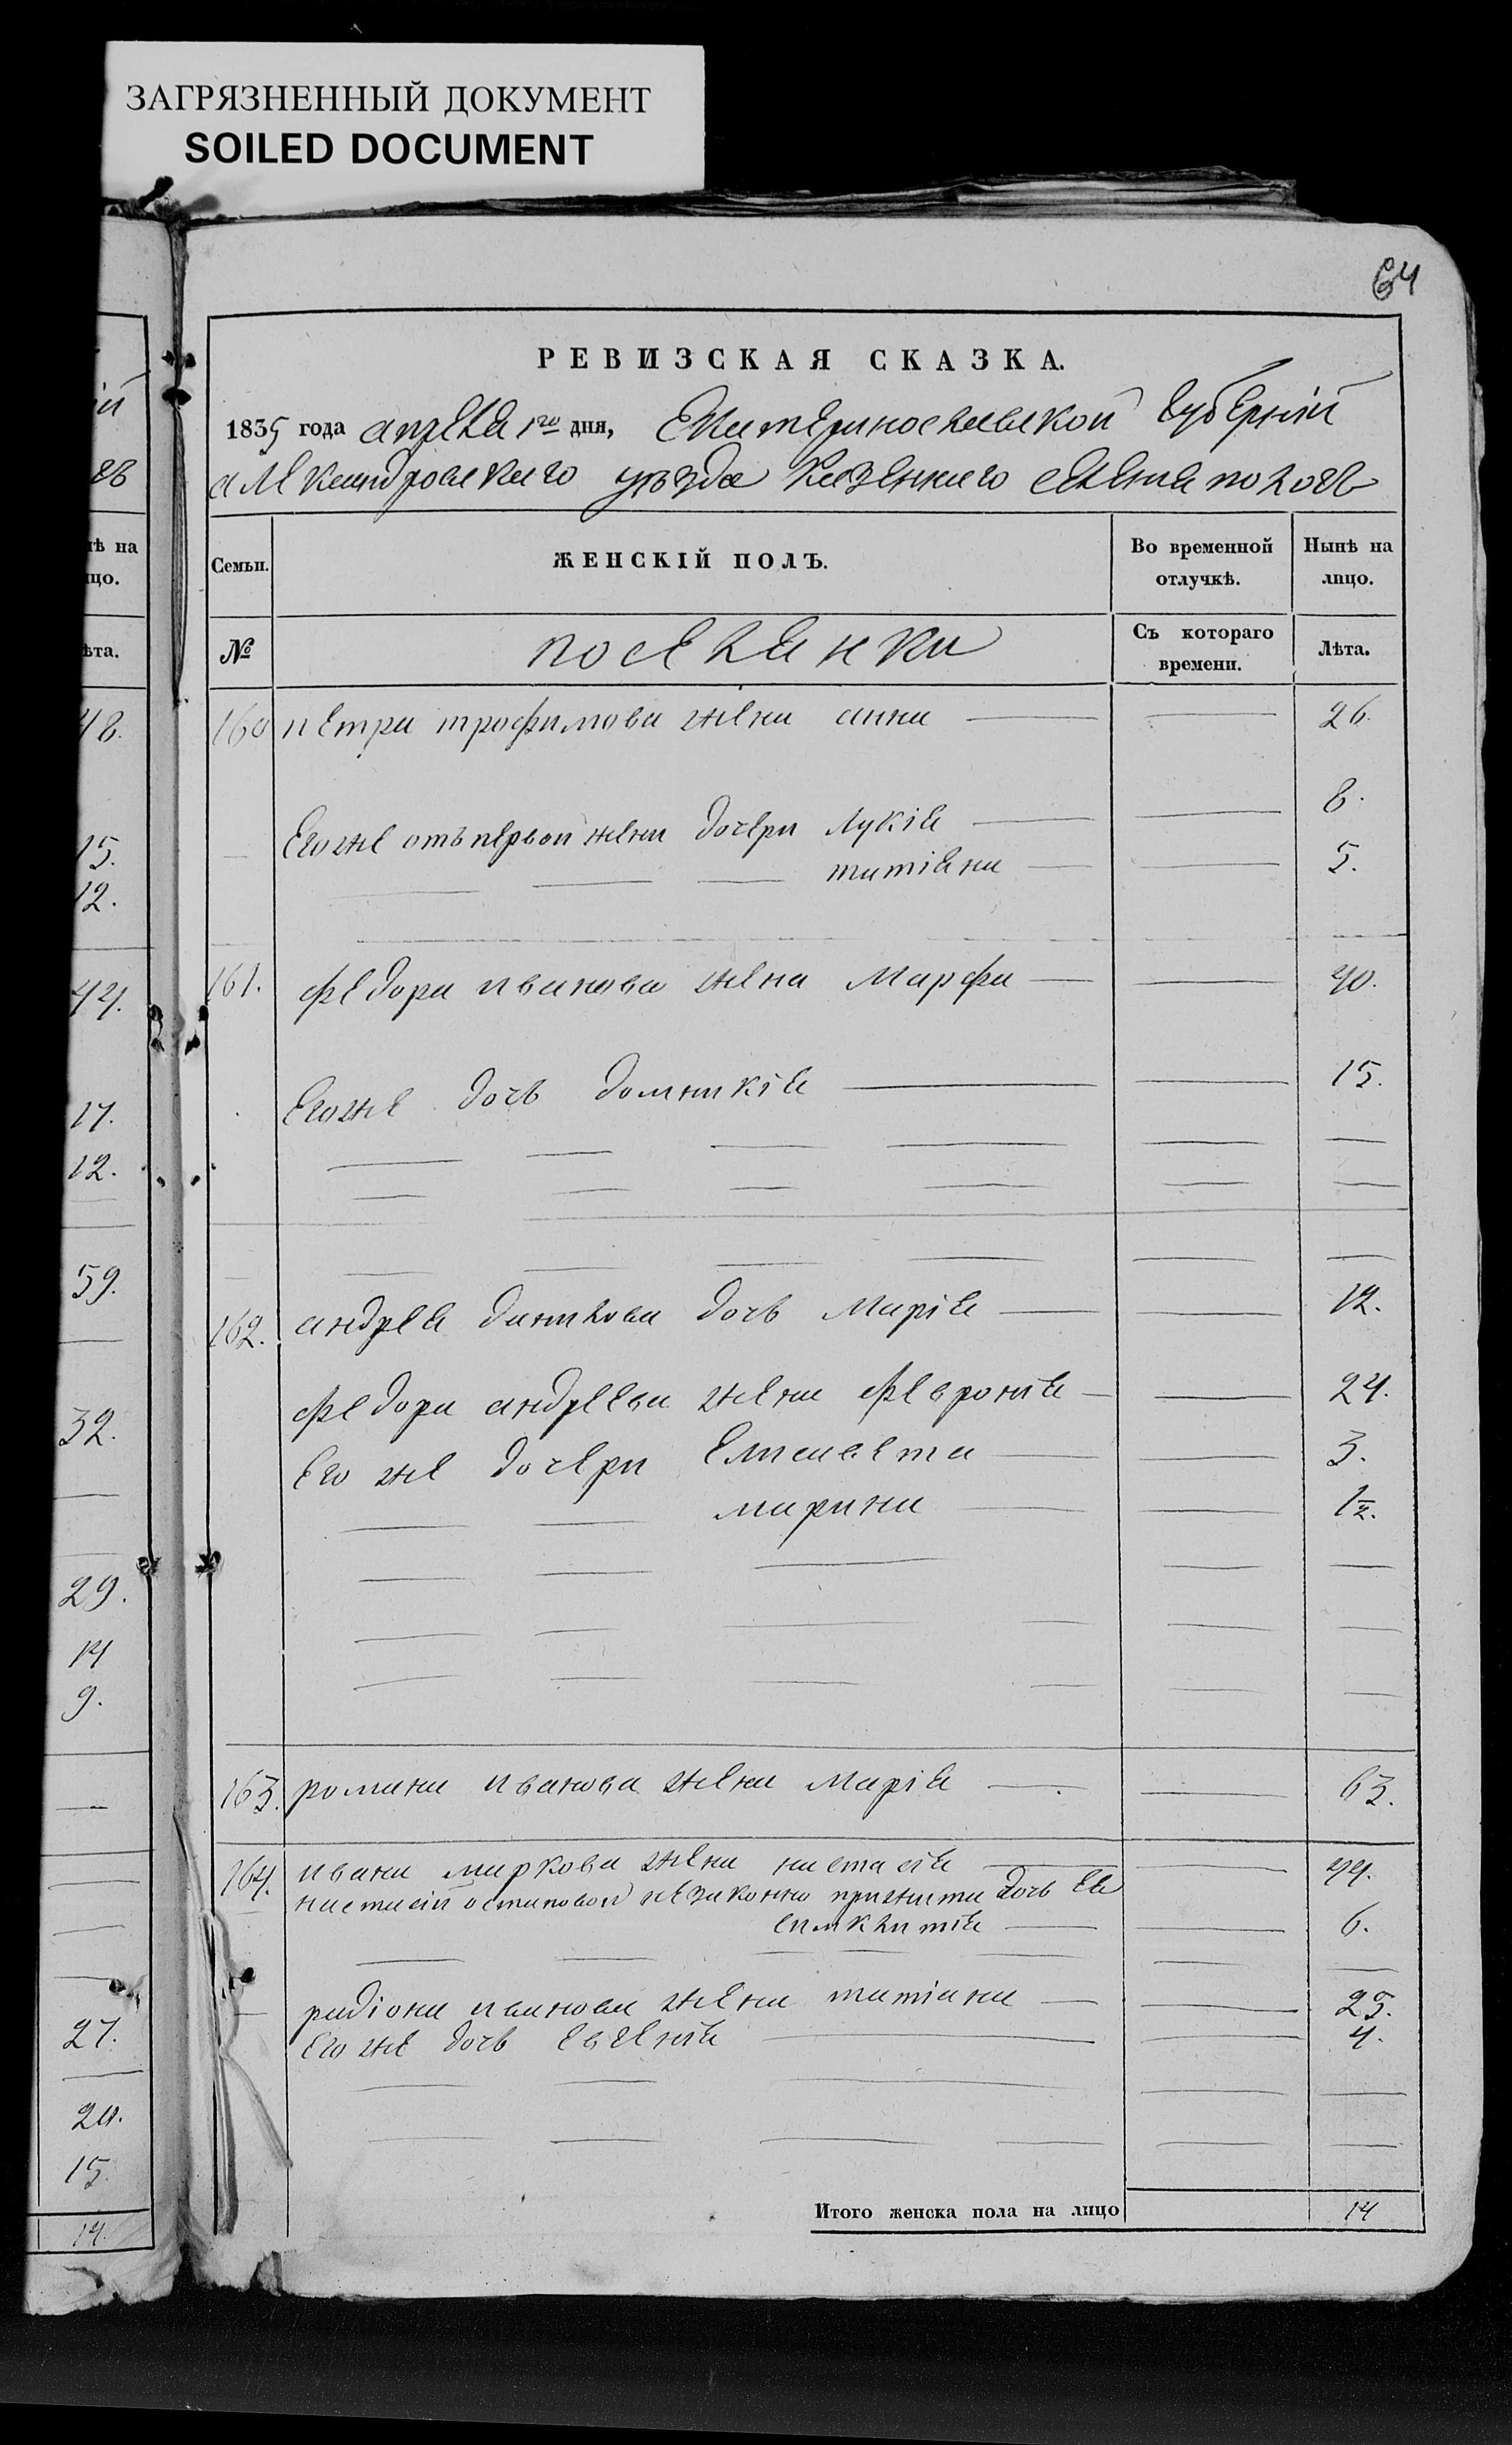 ЗАГРЯЗНЕННЫЙ ДОКУМЕНТ
SOILED DOCUMENT
64
РЕВИЗСКАЯ СКАЗКА.
1835 года апреля 1го дня, Екатеринославской губернiи
александровского уѣзда казенного селения пологъ
Семьи. ЖЕНСКІЙ ПОЛЪ. Во временной отлучкѣ. Нынѣ на лицо.
№ поселянки Съ котораго времени. Лѣта.
160 петра трофимова жена анна 26.
Егоже отъ первой жены дочери лукiя 8.
татiяна 5.
161. федора иванова жена марфа 40.
Егоже дочь домникiя 15.
162. андрея данилова дочь марiя 12.
федора андреева жена феврония 24.
Его же дочери Елисавета 3.
марина 1/2.
163. романа иванова жена марiя 63.
164. ивана маркова жена настасiя 44.
настасiи остаповой незаконно прижита дочь Ея
синклитiя 6.
радiона иванова жена татiана 25.
Его же дочь евгения 4.
Итого женска пола на лицо 14
48.
15.
12.
44.
17.
12.
59.
32.
29.
14
9.
27.
20.
15.
14.